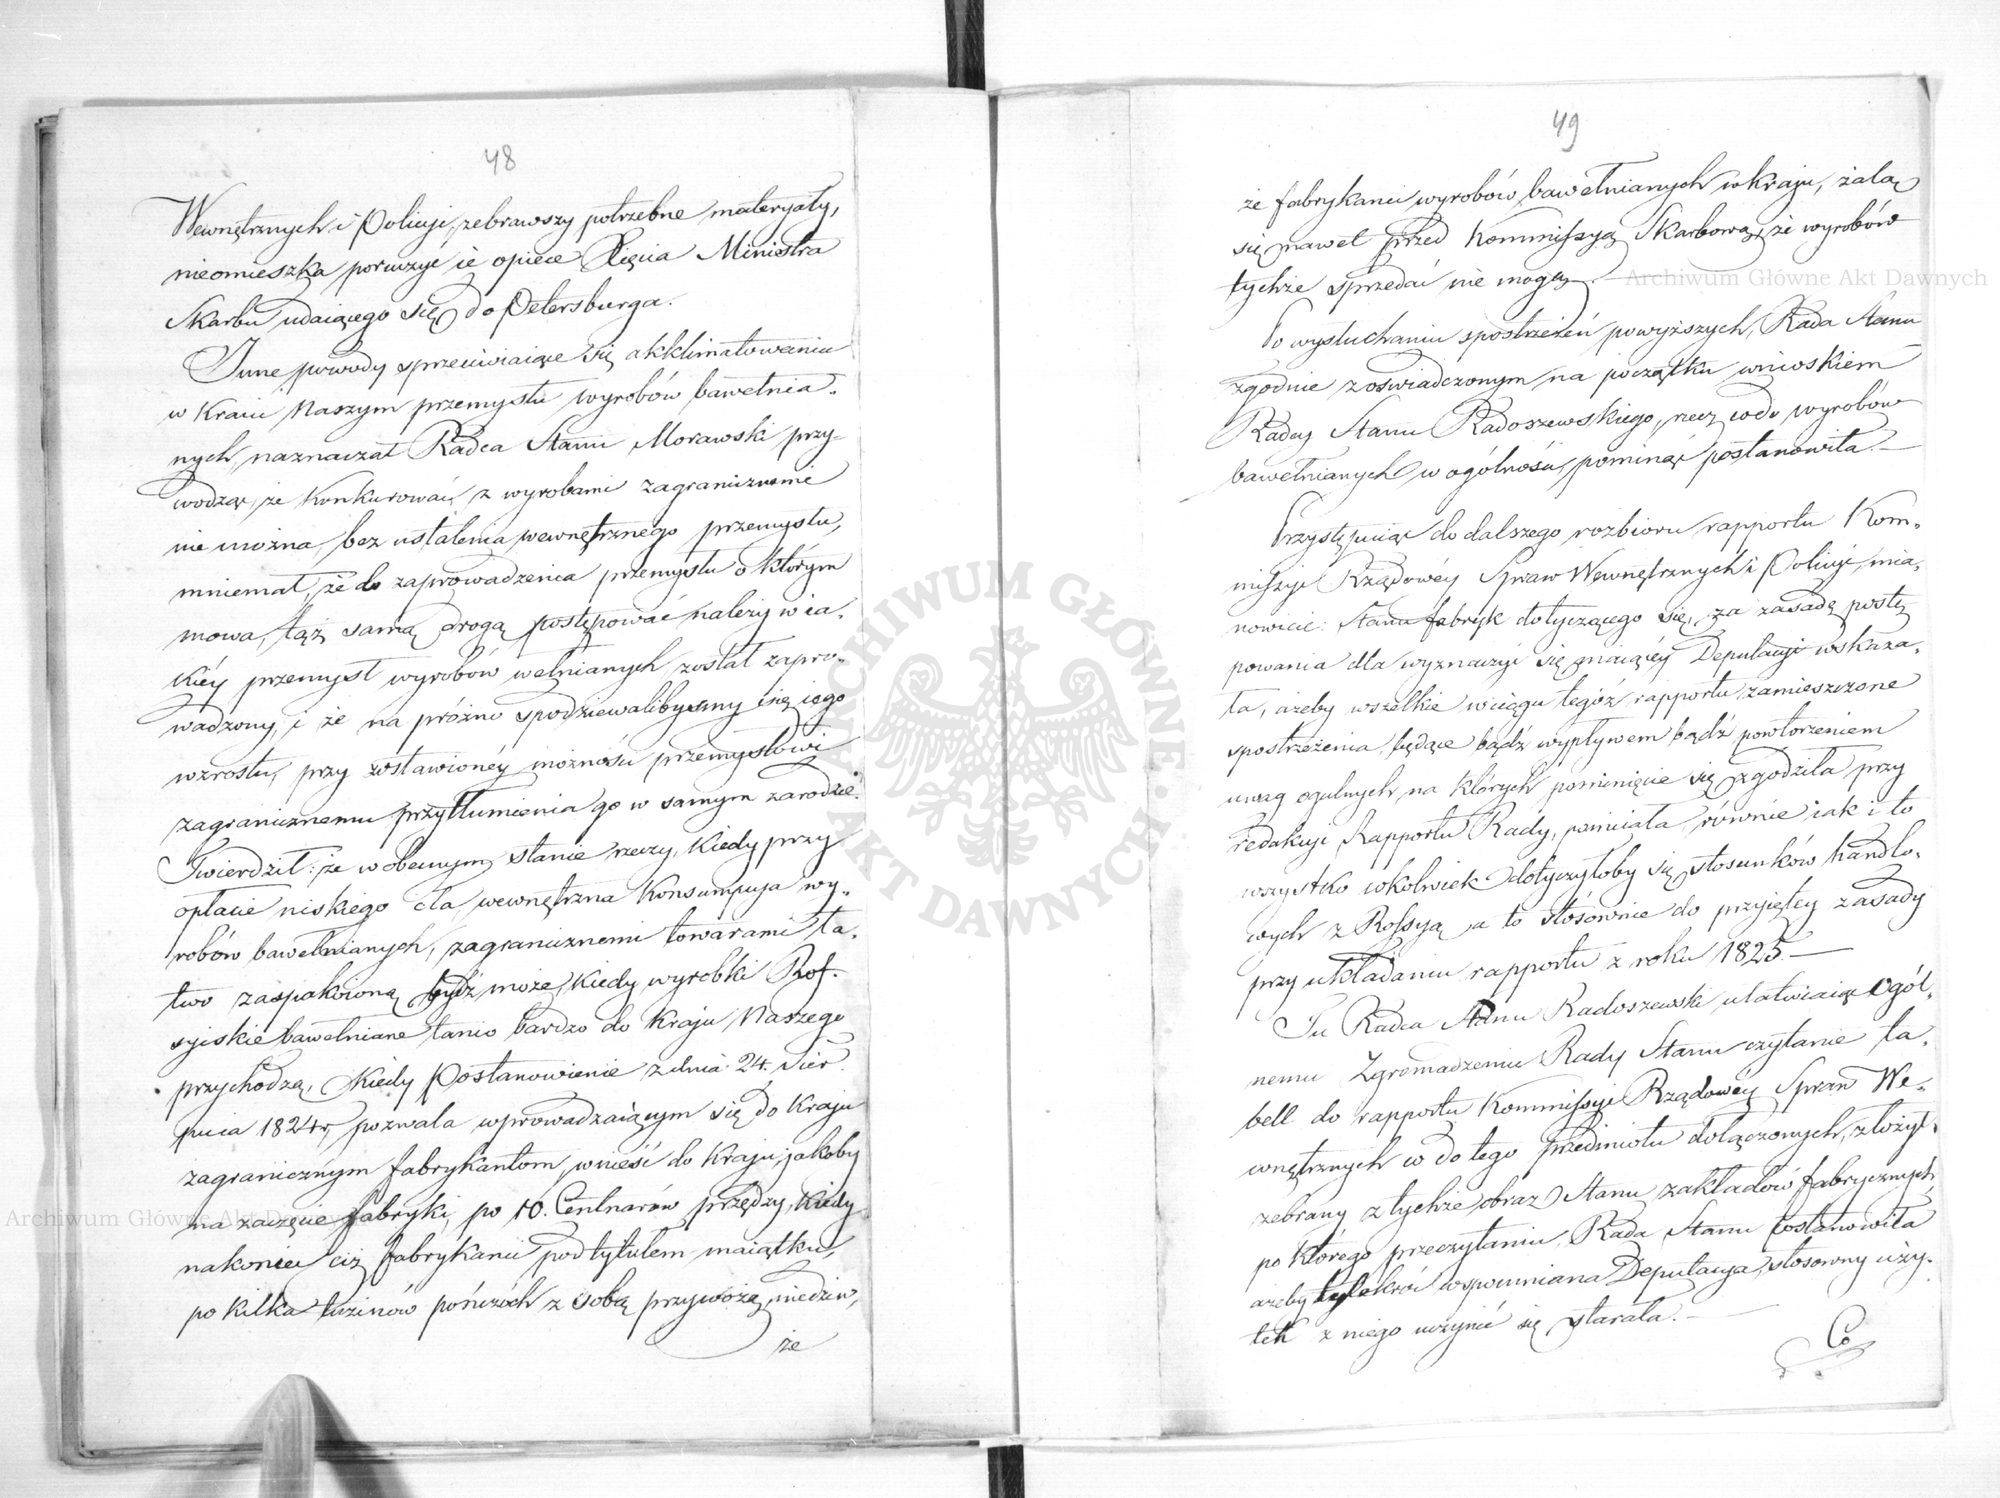 48
Wewnętrznych i Policyi, zebrawszy potrzebne materyały,
nieomieszka poruczyć ie opiece Xięcia Ministra
Skarbu udaiącego się do Petersburga.
Inne powody sprzeciwiaiące się akklimatowaniu
w Kraiu Naszym przemysłu wyrobów bawełnia-
nych, naznaczał Radca Stanu Morawski przy-
wodząc, że Konkurować z wyrobami zagranicznemi
nie można, bez ustalenia wewnętrznego przemysłu,
mniemał, że do zaprowadzenia przemysłu o którym
mowa, tąż samą drogą postępować należy w ia-
kiéy przemysł wyrobów wełnianych został zapro-
wadzony, i że na próżno spodziewalibyśmy się iego
wzrostu, przy zostawionéy możności przemysłowi
zagranicznemu przytłumienia go w samym zarodzie.
Twierdził: że w obecnym stanie rzeczy, Kiedy przy
opłacie niskiego cła, wewnętrzna Konsumpcya wy-
robów bawełnianych, zagranicznemi towarami ła-
two zaspakoioną bydź może, Kiedy wyrobki Ros-
syiskie bawełniane tanio bardzo do Kraju Naszego
przychodzą, Kiedy Postanowienie z dnia 24. Sier-
pnia 1824 r. pozwala wprowadzaiącym się do Kraju
zagranicznym fabrykantom, wnieść do Kraju, jakoby
na zaczęcie fabryki, po 10. Centnarów przędzy, Kiedy
nakoniec ciż fabrykanci pod tytułem maiątku,
po kilka tuzinów pończoch z sobą przywożą, niedziw,
że
49
że fabrykanci wyrobów bawełnianych w kraju, żalą
się nawet przed Kommissyą Skarbową, że wyrobów
tychże sprzedać nie mogą.
Po wysłuchaniu spostrzeżeń powyższych, Rada Stanu
zgodnie z oświadczonym na początku wnioskiem
Radcy Stanu Radoszewskiego, rzecz co do wyrobów
bawełnianych w ogólności, pominąć postanowiła.
Przystępuiąc do dalszego rozbioru rapportu Kom-
missyi Rządowéy Spraw Wewnętrznych i Policyi, mia-
nowicie: Stanu fabryk dotyczącego się, za zasadę postę-
powania dla wyznaczyć się maiącéy Deputacyi wskaza-
ła, ażeby wszelkie w ciągu tegoż rapportu zamieszczone
spostrzeżenia, będące bądź wypływem bądź powtórzeniem
uwag ogulnych, na których pominięcie się zgodziła przy
redakcyi Rapportu Rady, pomiiała, równie iak i to
wszystko cokolwiek dotyczyłoby się stosunków handlo-
wych z Rossyą, a to stósownie do przyiętey zasady
przy układaniu rapportu z roku 1825.
Tu Radca Stanu Radoszewski ułatwiaiąc Ogól-
nemu Zgromadzeniu Rady Stanu czytanie ta-
bell do rapportu Kommissyi Rządowéy Spraw We-
wnętrznych co do tego przedmiotu dołączonych, złożył
zebrany z tychże obraz Stanu zakładów fabrycznych,
po którego przeczytaniu, Rada Stanu postanowiła
ażeby tylekroć wspomniana Deputacya, stosowny uży-
tek z niego uczynić się starała.
Co
Archiwum Główne Akt Dawnych
Archiwum Główne Akt Dawnych
ARCHIWUM GŁÓWNE AKT DAWNYCH